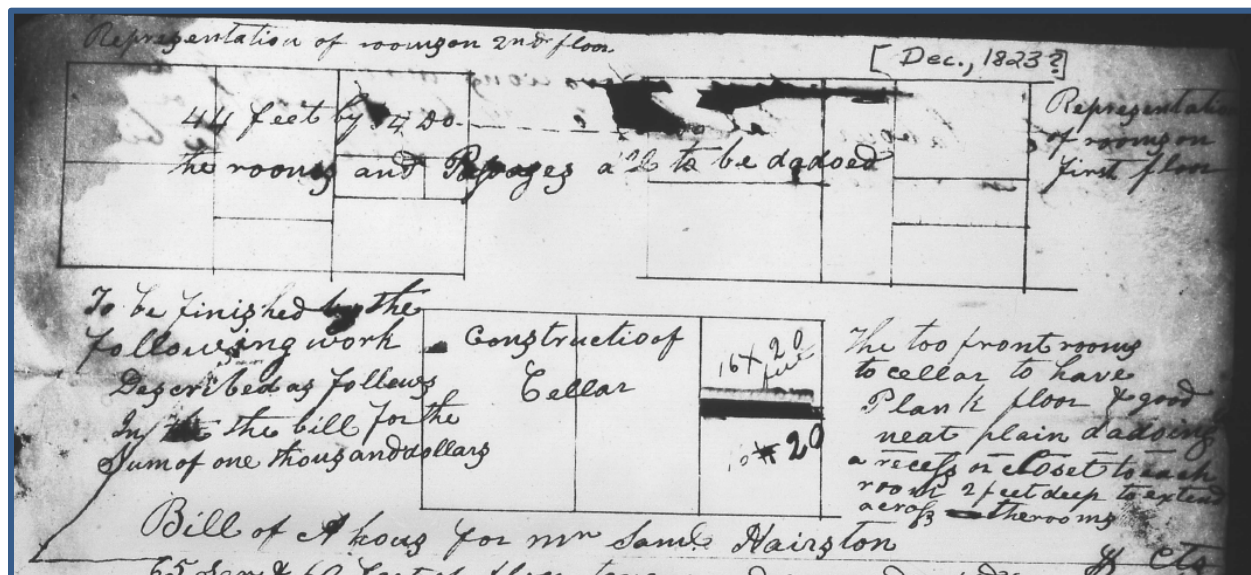 Representation of rooms on 2nd floor
[Dec., 1823?]
44 feet by 34 Do
the rooms and Passages all to be dadoed
Representation
of rooms on
first floor
To be finished by the
following work
Described as follows
In the bill for the
Sum of one thousand dollars
Construction of
Cellar
16 X 20
feet
20
The too front rooms
to cellar to have
Plank floor & good
neat plain dadoing
a recess or closet to each
room 2 feet deep to extend
across the rooms
Bill of A hous for mr Saml. Hairston
$ Cts